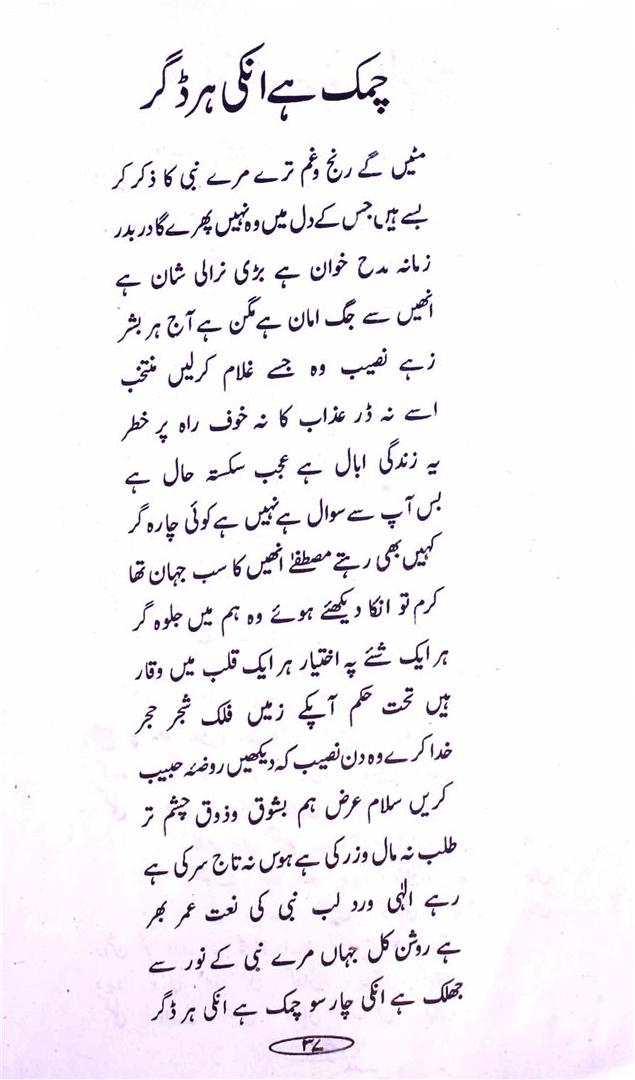 چمک ہے انکی ہر ڈگر
مٹیں گے رنج وغم ترے مرے نبی کا ذکر کر
بسے ہیں جس کے دل میں وہ نہیں پھرے گا در بدر
زمانہ مدح خوان ہے بڑی نرالی شان ہے
انھیں سے جگ امان ہے مگن ہے آج ہر بشر
زہے نصیب وہ جسے غلام کرلیں منتخب
اسے نہ ڈر عذاب کا نہ خوف راہ پر خطر
یہ زندگی ابال ہے عجب سکستہ حال ہے
بس آپ سے سوال ہے نہیں ہے کوئی چارہ گر
کہیں بھی رہتے مصطفےٰ انھیں کا سب جہان تھا
کرم تو انکا دیکھئے ہوئے وہ ہم میں جلوہ گر
ہر ایک شئے پہ اختیار ہر ایک قلب میں وقار
ہیں تحت حکم آپکے زمیں فلک شجر حجر
خدا کرے وہ دن نصیب کہ دیکھیں روضۂ حبیب
کریں سلام عرض ہم بشوق وذوق چشم تر
طلب نہ مال وزر کی ہے ہوس نہ تاج سر کی ہے
رہے الٰہی ورد لب نبی کی نعت عمر بھر
ہے روشن کل جہاں مرے نبی کے نور سے
جھلک ہے انکی چار سو چمک ہے انکی ہر ڈگر
۳۷